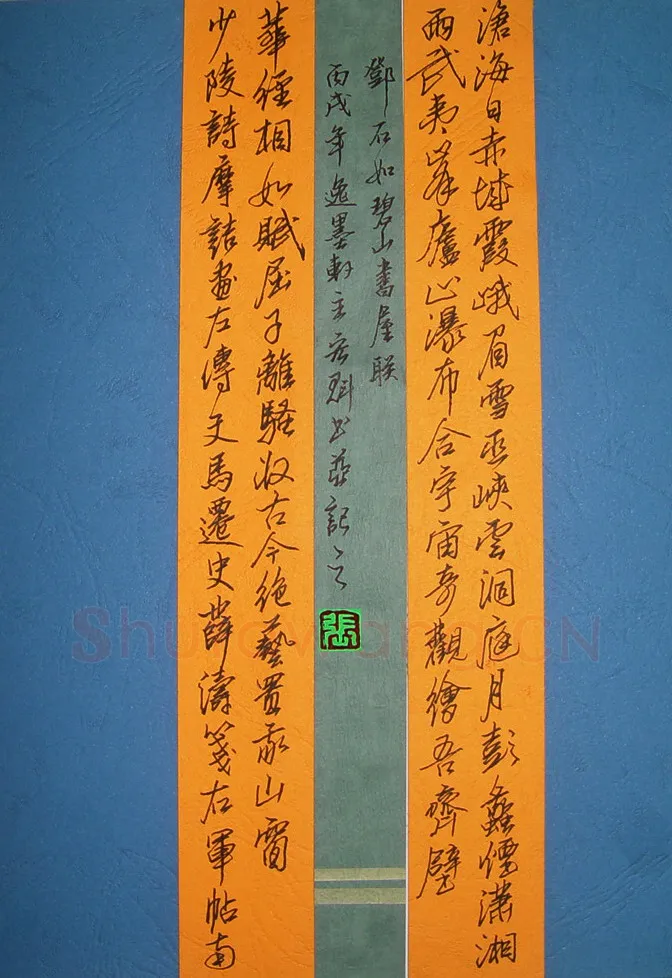 滄海日赤城霞峨眉雪巫峽雲洞庭月彭蠡煙瀟湘
雨武夷峯廬山瀑布合宇宙奇觀繪吾齋壁
少陵詩摩詰畫左傳文馬遷史薛濤箋右軍帖南
華經相如賦屈子離騷收古今絕藝置我山窗
鄧石如碧山書屋联
丙戌年逸墨軒主书並記之
张